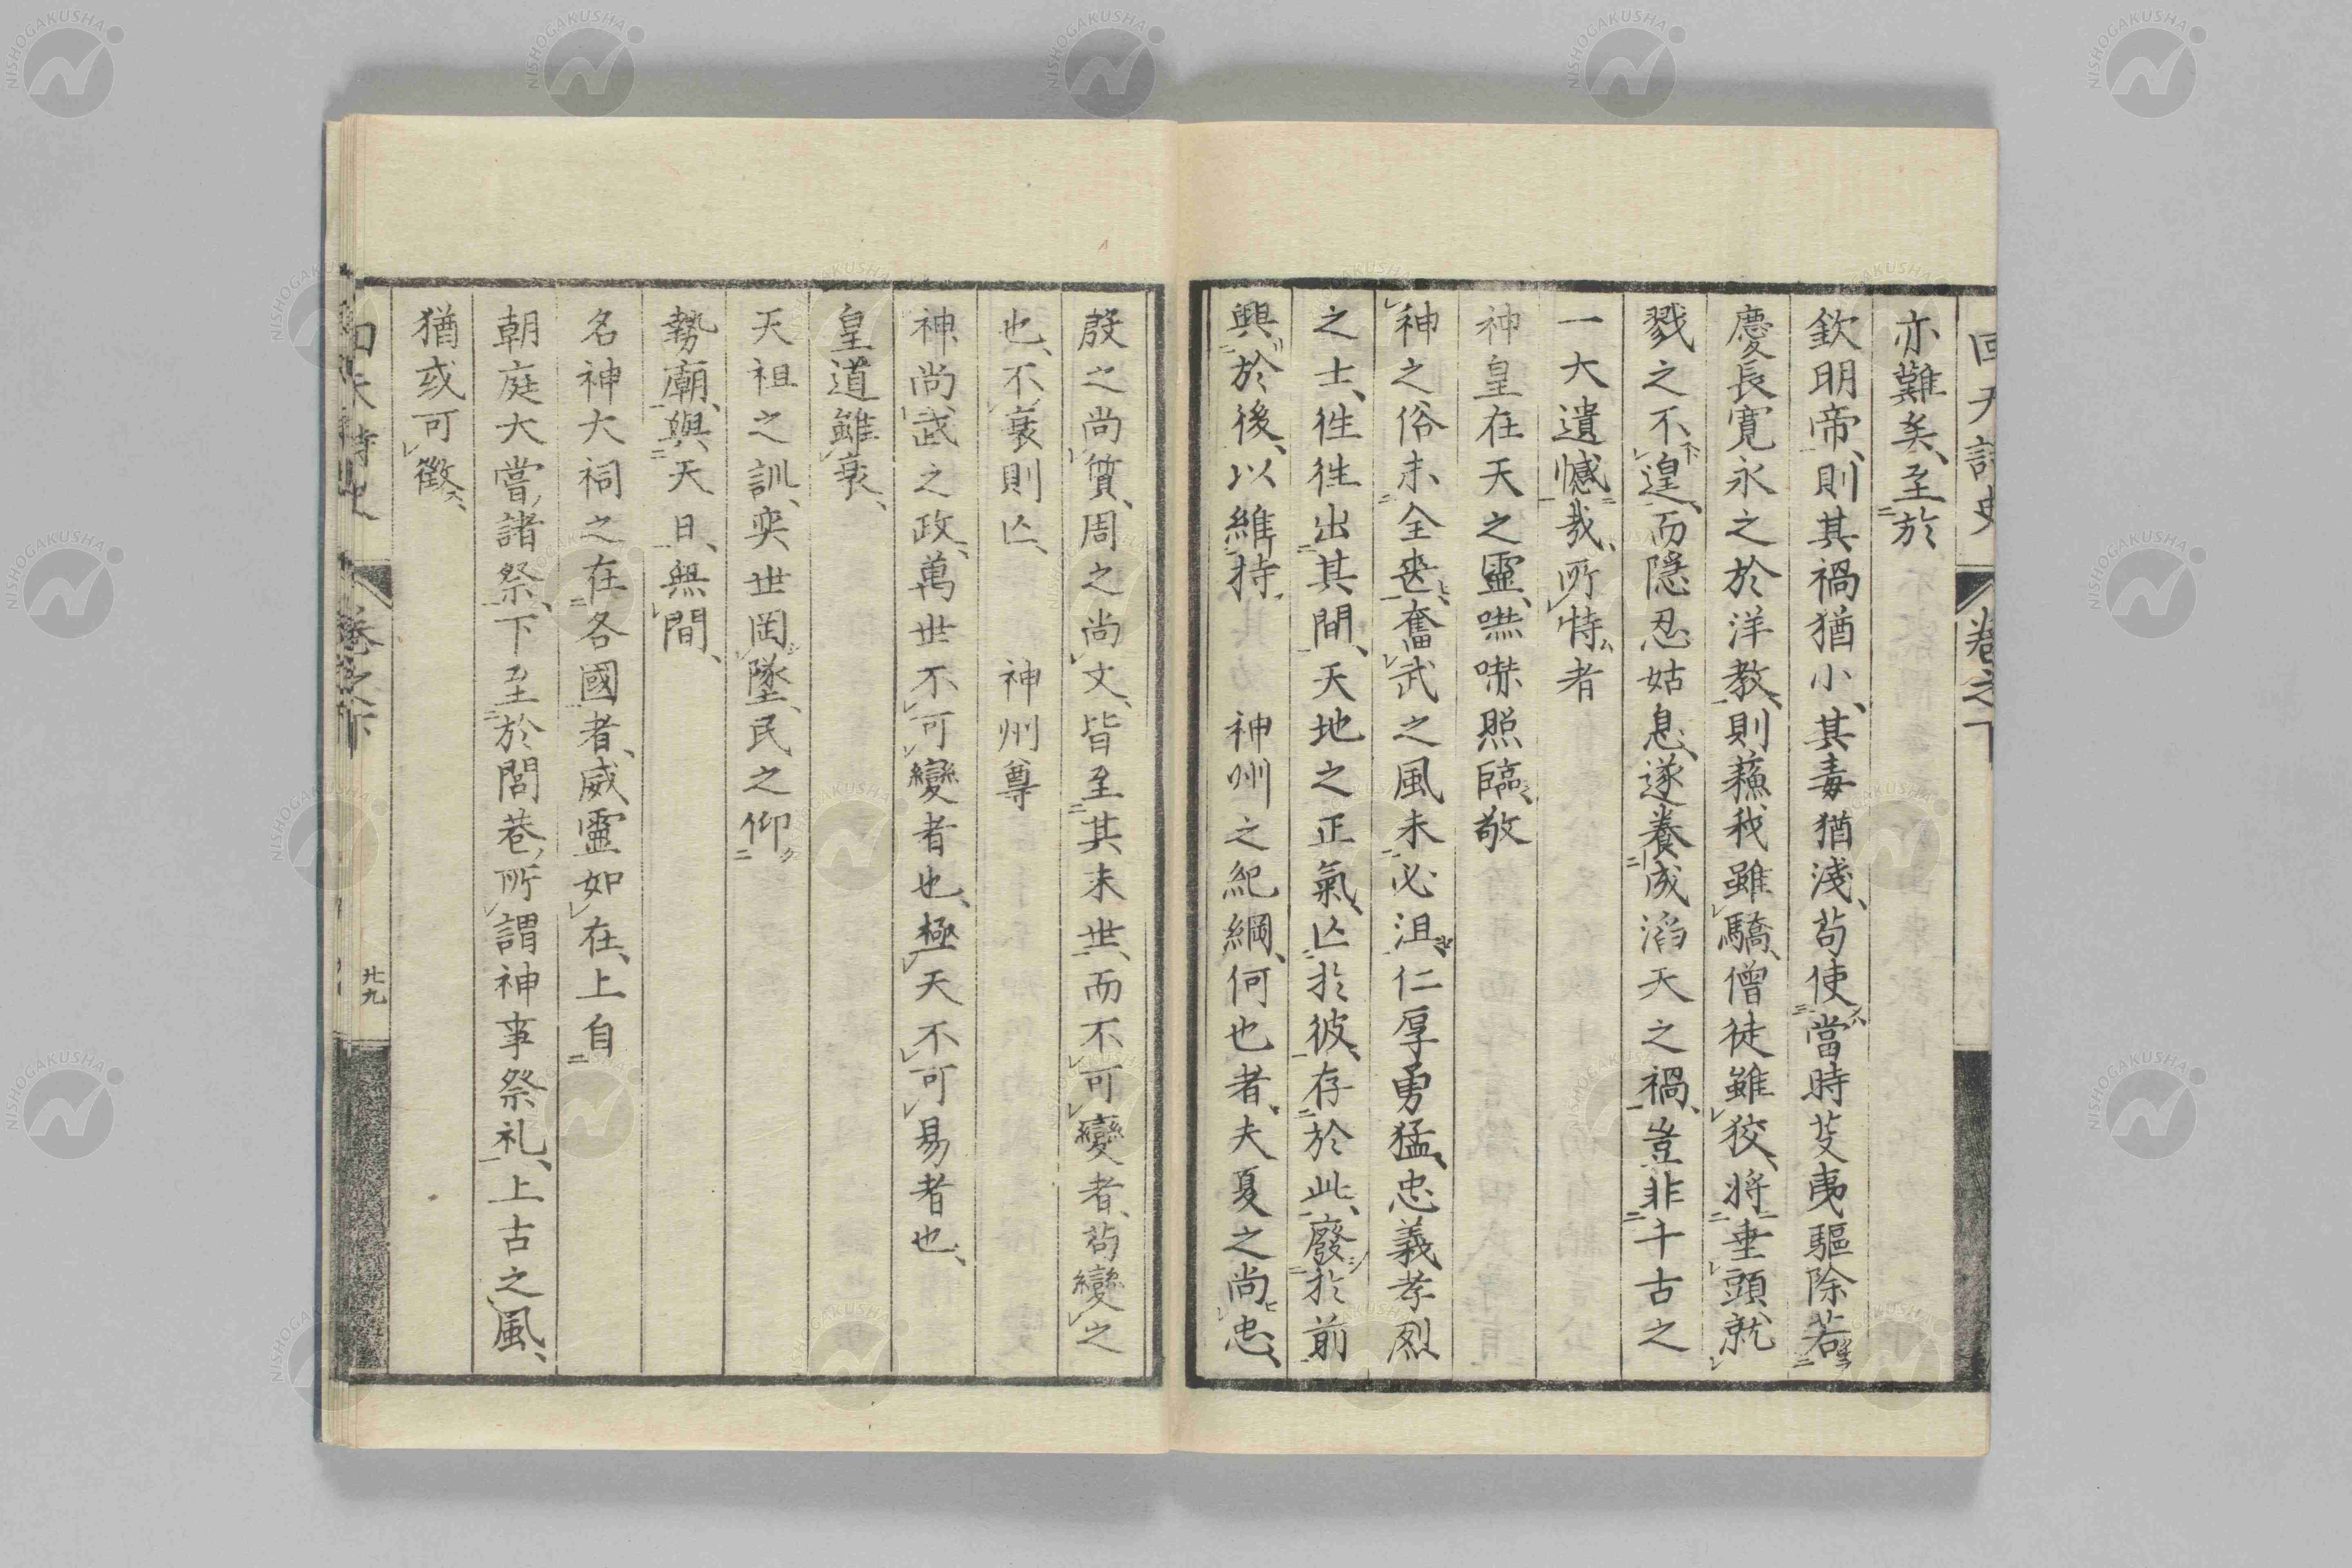 回天詩史 卷之下
亦難矣、至於
欽明帝、則其禍猶小、其毒猶淺、苟使當時芟夷驅除若
慶長寬永之於洋教、則蘓我雖驕、僧徒雖狡、將垂頭就
戮之不遑、而隱忍姑息、遂養成滔天之禍、豈非千古之
一大遺憾哉、所恃者
神皇在天之靈、嚇嚇照臨、敬
神之俗未全喪、奮武之風未必沮、仁厚勇猛、忠義孝烈
之士、徃徃出其間、天地之正氣、亾於彼、存於此、廢於前
興於後、以維持 神州之紀綱、何也者、夫夏之尚忠、
殷之尚質、周之尚文、皆至其末世、而不可變者、苟變之
也、不衰則亾、 神州尊
神尚武之政、萬世不可變者也、極天不可易者也、
皇道雖衰、
天祖之訓、奕世罔墜、民之仰
勢廟、與天日、無間、
名神大祠之在各國者、威靈如在、上自
朝庭大嘗、諸祭、下至於閭巷、所謂神事祭礼、上古之風、
猶或可徵、
回天詩史 卷之下 廿九
NISHOGAKUSHA